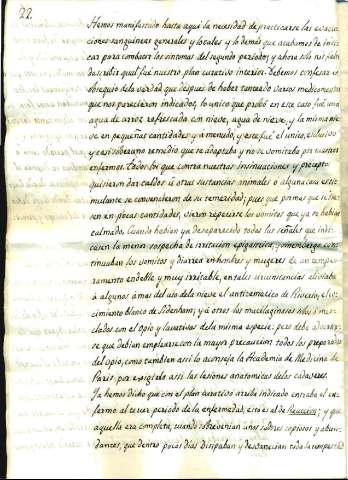 22.
Hemos manifestado hasta aquí la necesidad de practicarse las evacua-
ciones sanguineas generales y locales y lo demás que acabamos de indi-
car para combatir los sintomas del segundo periodo; y ahora solo nos falta
describir qual fué nuestro plan curativo interior. debemos confesar en
obsequio de la verdad que despues de haber tanteado varios medicamentos
que nos parecieron indicados, lo unico que probó en este caso fué una
agua de arroz refrescada con nieve, agua de nieve, y la misma nie-
ve en pequeñas cantidades y á menudo, y este fué el unico, exclusivo
y casi soberano remedio que se adaptaba y no se vomitaba por nuestros
enfermos. todos los que contra nuestras insinuaciones y precepto
quisieron dar caldos ú otras sustancias animales o alguna cosa esti-
mulante se convencieron de su temeridad; pues que por mas que lo hi-
ciesen en pocas cantidades, vieron repetirse los vomitos que ya se habian
calmado. Cuando habian ya desaparecido todas las señales que indi-
casen la menor sospecha de irritacion epigastrica, y sin embargo con-
tinuaban los vomitos y diarrea en hombres y mugeres de un tempe-
ramento endeble y muy irritable, en tales circunstancias aliviaba
á algunos á mas del uso de la nieve el antiemetico de Riverio, el co-
cimiento blanco de Sidenham; y á otros los mucilaginosos solos ó mez-
clados con el opio y lavativas de la misma especie: pero debe advertir-
se que debian emplearse con la mayor precaucion todos los preparados
del opio, como tambien assi lo aconseja la Academia de Medicina de
Paris por exigirlo assi las lesiones anatomicas de los cadaveres.
Ya hemos dicho que con el plan curativo arriba indicado entraba el en-
fermo al tercer periodo de la enfermedad, esto es al de Reaccion; y que
aquella era completa, cuando sobrevenian unos sudores copiosos y abun-
dantes, que dentro pocos dias disipaban y desvanecian toda la